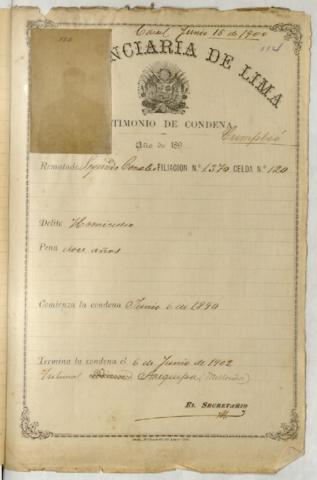 Junio 15 de 1900
NCIARÍA DE LIMA
TIMONIO DE CONDENA.
Cumplió
Año de 189
Rematado Segundo FILIACION N.º 1370 CELDA N.º 120
Delito Homicidio
Pena doce años
Comienza la condena Junio 6 de 1890
Termina la condena el 6 de Junio de 1902
Tribunal Arequipa (Mollendo)
EL SECRETARIO